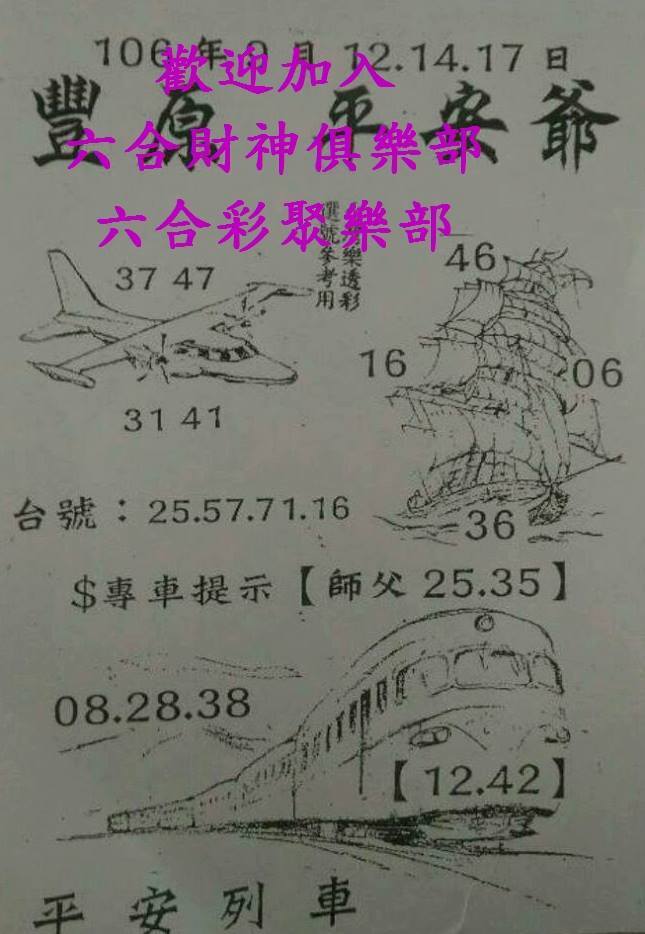 106年9月12.14.17日
歡迎加入
豐原 平安爺
六合財神俱樂部
六合彩聚樂部
樂透彩
選號參考用
37 47
46
16
06
31 41
台號：25.57.71.16
36
$專車提示【師父 25.35】
08.28.38
【12.42】
平安列車